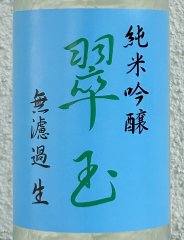 純米吟醸
翠玉
無濾過生